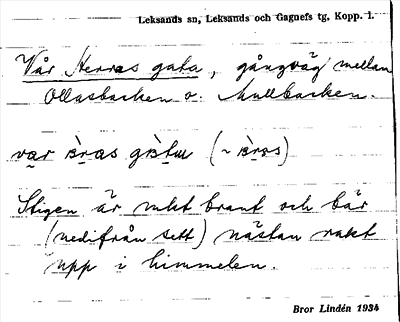 Leksands sn, Leksands och Gagnefs tg. Kopp. l.
Vår Herras gata, gångväg mellan
Ollasbacken o. Mullbacken.
Stigen är mkt brant och bär
(nedifrån sett) nästan rakt
upp i himmelen.
Bror Lindén 1934